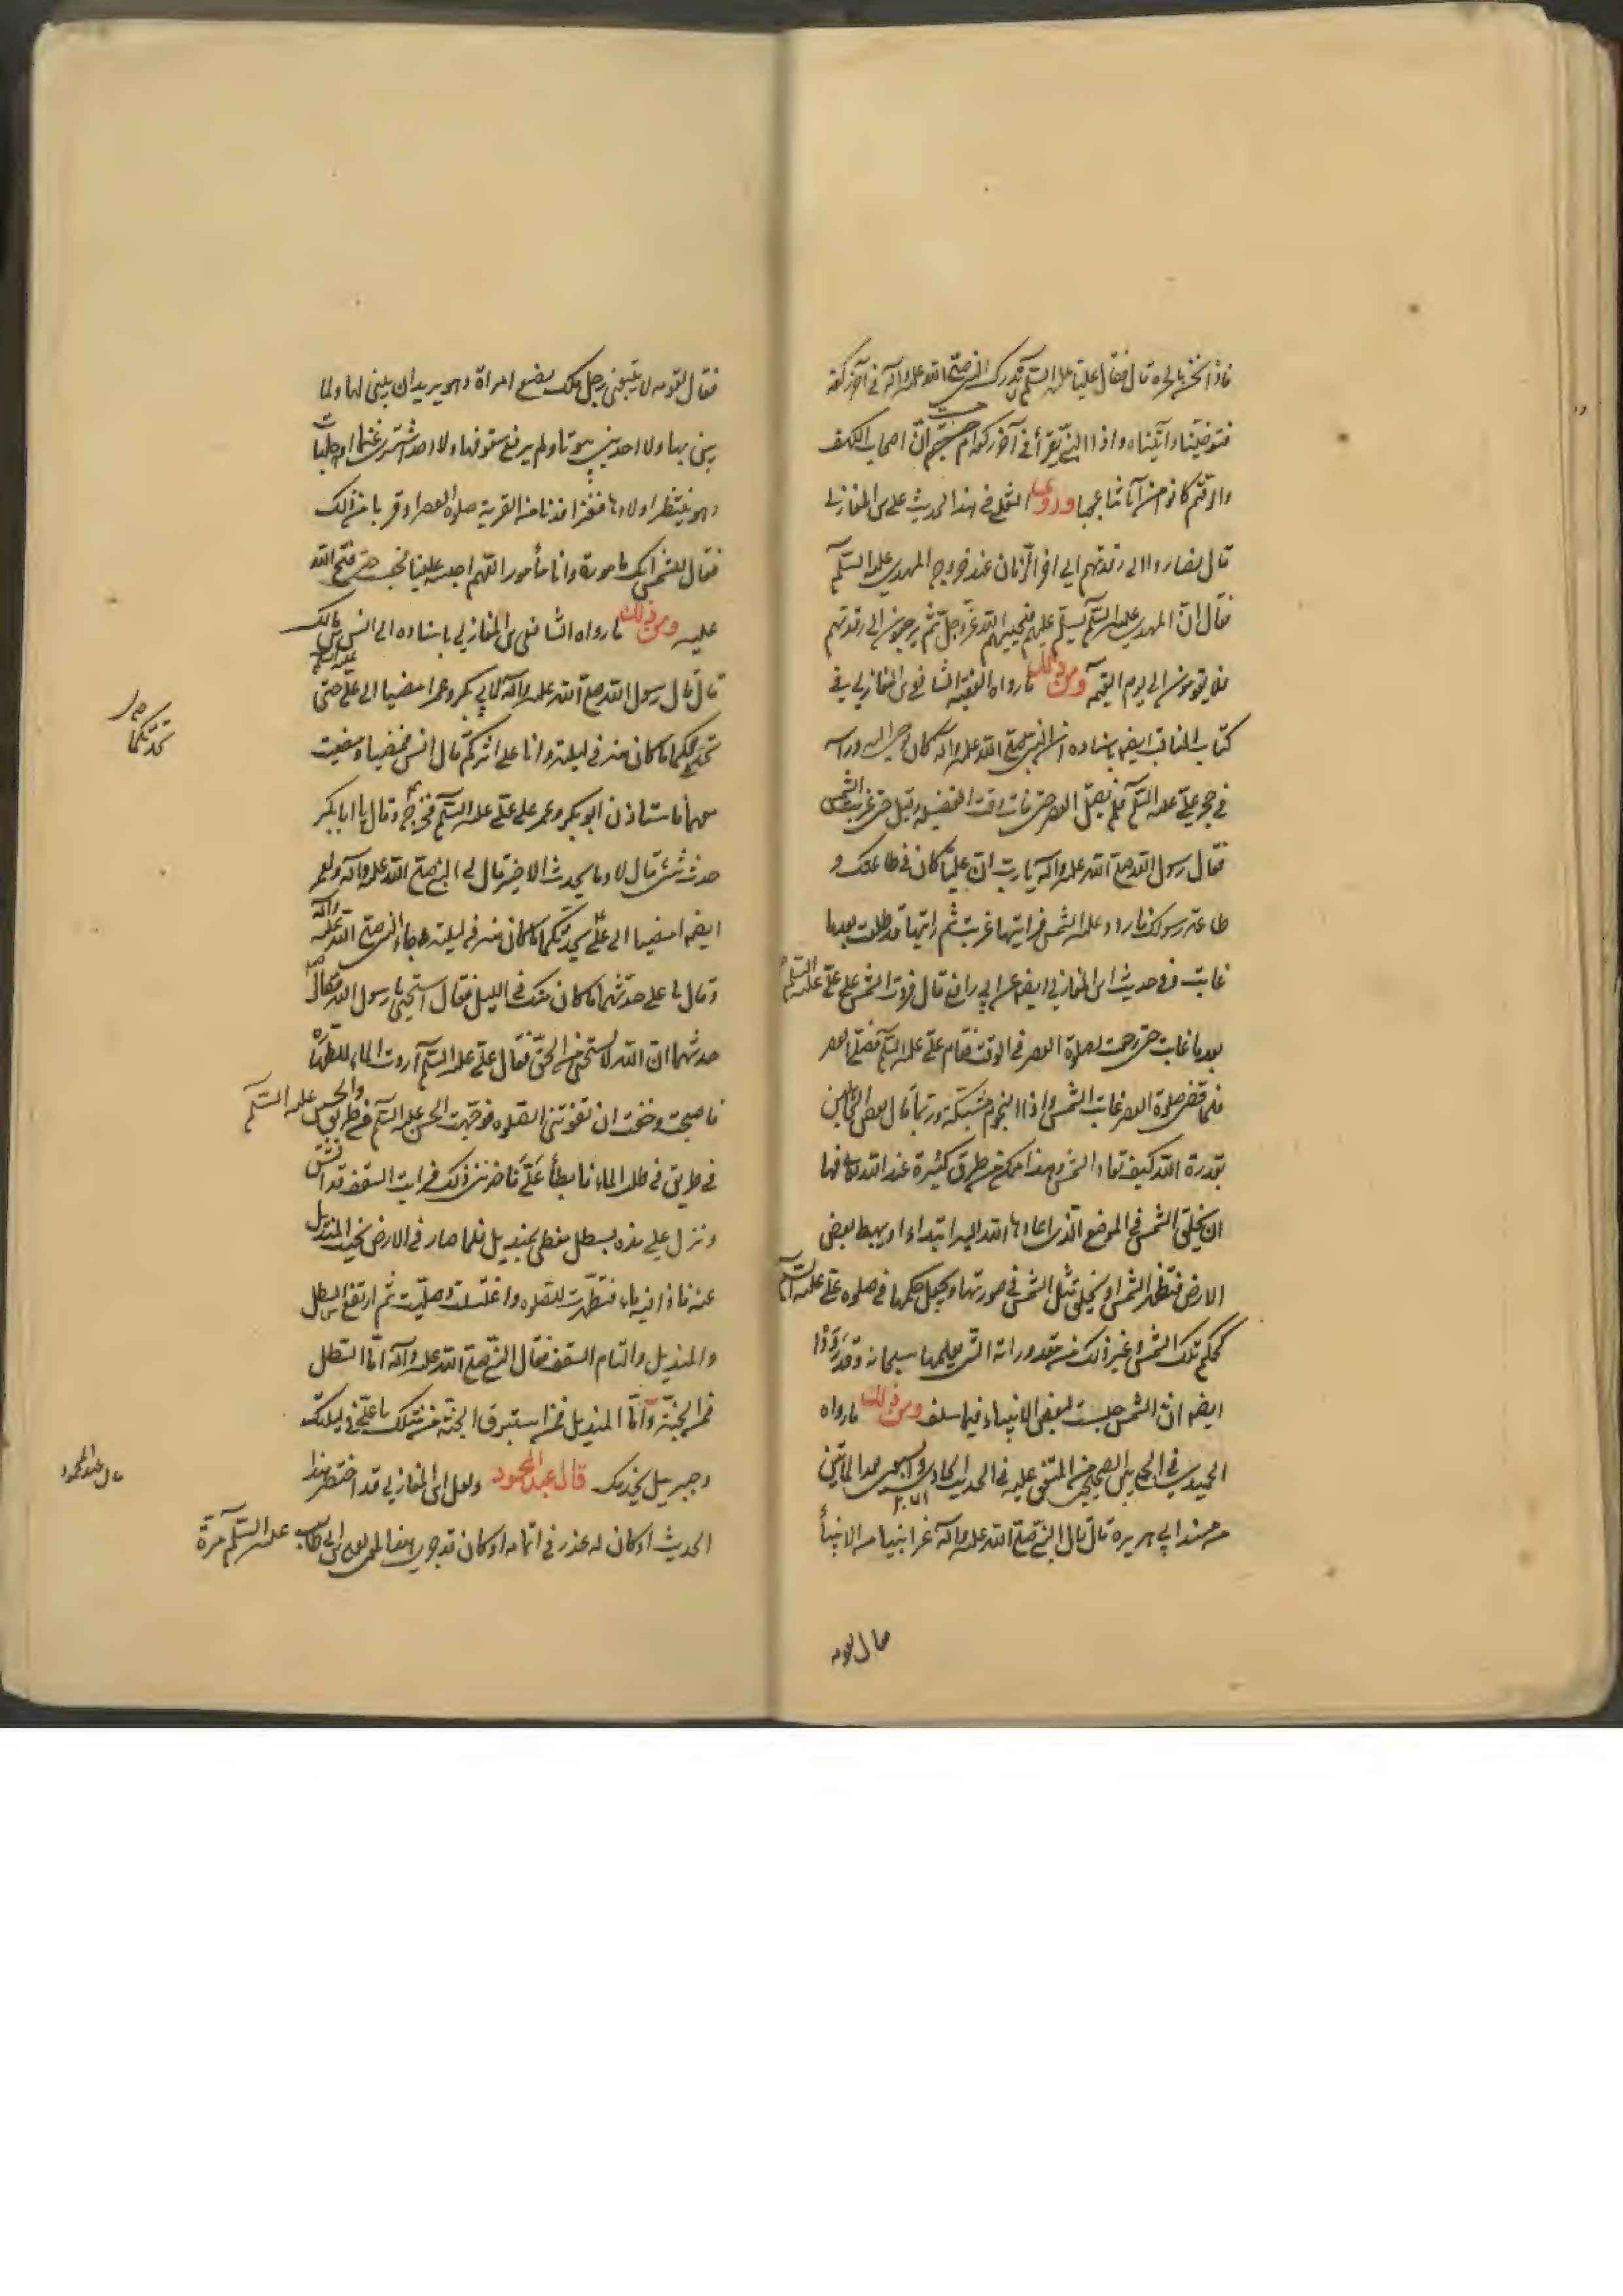 فاذا نحن بالحرة قال فقال عليا عليه السلم ندرك النبي صلى الله عليه واله في آخر ركعة
فتوضينا واتيناه واذا النبي يقرأ في آخر ركعة ام حسبتم انّ اصحاب الكهف
والرقيم كانوا من آياتنا عجبا وروى الثعلبي في هذا الحديث على ابن المغازلي
قال فصاروا الى رقدتهم الى اخر الزمان عند خروج المهدي عليه السلم
فقال انّ المهدي عليه السلم يسلّم عليهم فيحييهم الله عزّ وجلّ ثم يرجعون الى رقدتهم
فلا يقومون الى يوم القيمه ومن ذلك ما رواه الفقيه الشافعي ابن المغازلي في
كتاب المناقب ايضه باسناده ان النبي صلى الله عليه واله كان يوحى اليه وراسه
في حجر عليّ عليه السلم فلم يصلّ العصر حتى فات وقت الفضيله وقيل حتى غربت الشمس
فقال رسول الله صلى الله عليه واله يا رب انّ عليّا كان في طاعتك و
طاعة رسولك فاردد عليه الشمس فرايتها غربت ثم رايتها قد طلعت بعد ما
غابت وفي حديث ابن المغازلي ايضه عن ابي رافع قال فردّت الشمس على عليّ عليه السلم
بعد ما غابت حتى رجعت لصلوة العصر في الوقت فقام عليّ عليه السلم فصلّى العصر
فلما قضى صلوة العصر غابت الشمس واذا النجوم مشتبكة وربّما قال بعض الجاهلين
بقدرة الله كيف تعاد الشمس وهذا ممكن من طرق كثيرة عند الله تعالى منها
ان يخلق الشمس في الموضع الذي اعادها الله اليه ابتداء او يهبط بعض
الارض فتظهر الشمس او يخلق مثل الشمس في صورتها ويجعل حكمها في صلوه عليّ عليه السلم
كحكم تلك الشمس وغير ذلك من مقدوراته التي يعلمها سبحانه وقد رووا
ايضه انّ الشمس حبست لبعض الانبياء فيما سلف ومن ذلك ما رواه
الحميدي في الجمع بين الصحيحين المتفق عليه في الحديث الحادي والسبعين بعد المأتين
من مسند ابي هريره قال قال النبي صلى الله عليه واله غزا نبيا من الانبيأ
فقال لقومه
فقال لقومه لا يتبعني رجل ملك بضع امراة وهو يريدان يبني لها ولما
يبني بها ولا احد بني بيوتا ولم يرفع سقوفها ولا احد اشترى غنما او خلفات
وهو ينتظر اولادها فغزا فدنا من القرية صلوه العصر او قريبا من ذلك
فقال للشمس انك مامورة وانا مأمور اللهم احبسه علينا فحبست حتى فتح الله
عليه ومن ذلك ما رواه الشافعي ابن المغازلي باسناده الى انس بن مالك
قال قال رسول الله صلى الله عليه واله لابي بكر وعمر امضيا الى عليّ عليه السلم حتى
يحدثكما ما كان منه في ليلته وانا على اثركم قال انس فمضيا ومضيت
معهما فاستاذن ابو بكر وعمر على عليّ عليه السلم فخرج وقال يا ابا بكر
حدث شئ قال لا وما يحدث الا خير قال لي النبي صلى الله عليه واله ولعمر
ايضه امضيا الى عليّ يحدثكما ما كان منه في ليلته وجاء النبي صلى الله عليه واله
وقال يا علي حدثهما ما كان منك في الليل فقال استحيي يا رسول الله فقال
حدثهما ان الله لا يستحيي من الحق فقال عليّ عليه السلم اردت الماء للطهارة
فاصبحت وخفت ان تفوتني الصلوه فوجّهت الحسن عليه السلم في طريق والحسين عليه السلم
في طريق في طلب الماء فابطأ عليّ فاحزنني ذلك فرايت السقف قد انشقّ
ونزل علي منه بسطل مغطى بمنديل فلما صار في الارض نحيت المنديل
عنه فاذا فيه ماء فتطهّرت للصلوه واغتسلت وصلّيت ثم ارتفع السطل
والمنديل والتام السقف فقال النبي صلى الله عليه واله امّا السطل
فمن الجنة وامّا المنديل فمن استبرق الجنة من مثلك يا عليّ في ليلتك
وجبريل يخدمك قال عبد المحمود ولعل ابن المغازلي قد اختصر هذا
الحديث او كان له عذر في اتمامه او كان قد جرى هذا لعلي بن ابي طالب عليه السلم مرّة
يحدثكما
قال عبد المحمود